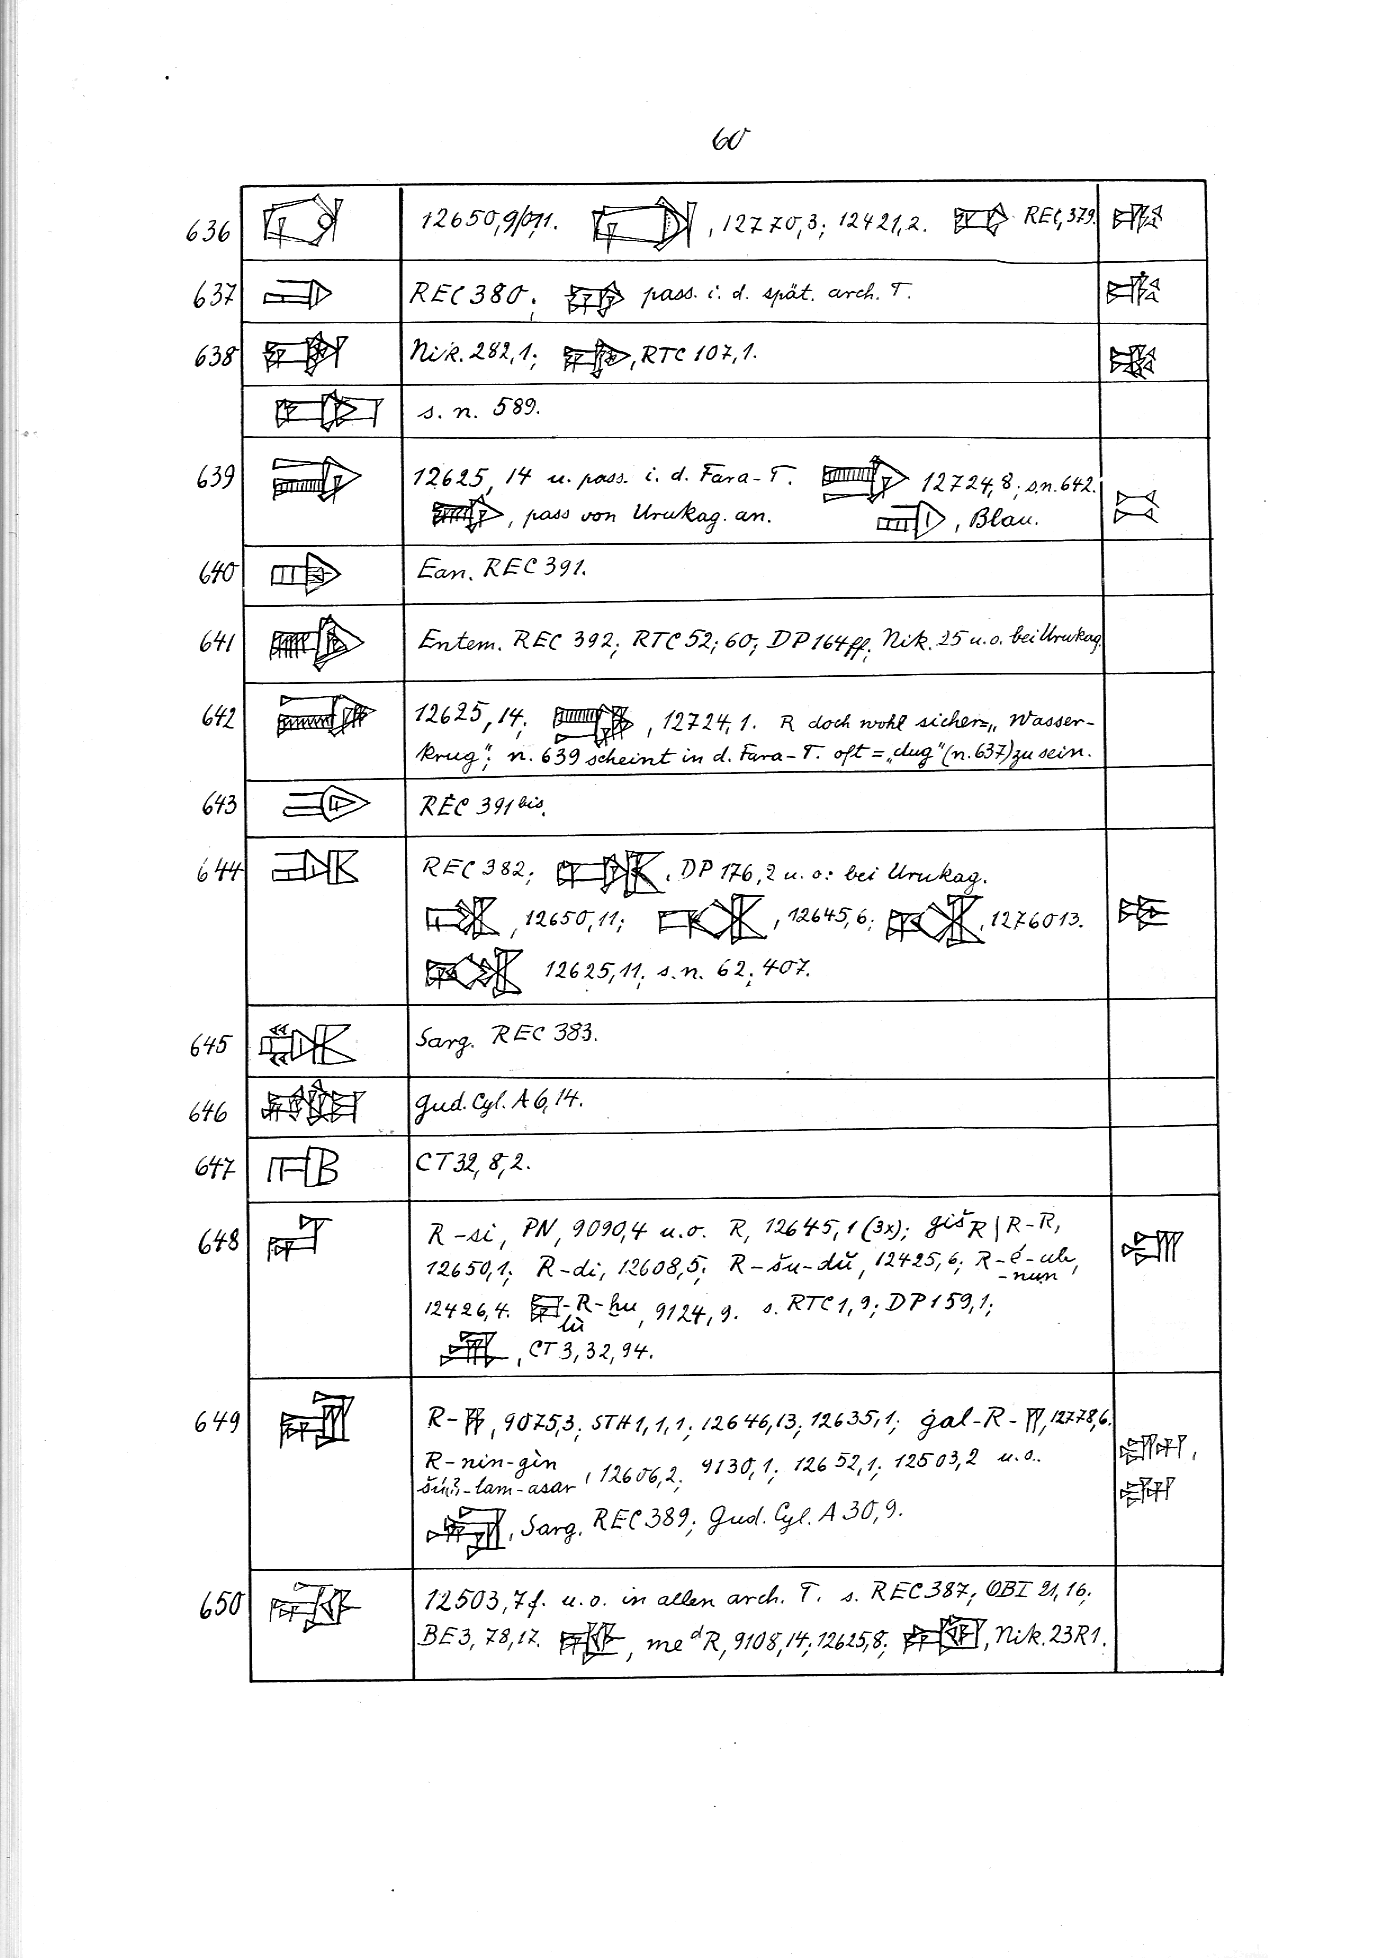 60
636 12650,9/011. , 12770,3; 12421,2. REC, 379.
637 REC 380; pass. i. d. spät. arch. T.
638 Nik. 282,1; , RTC 107,1.
s. n. 589.
639 12625, 14 u. pass. i. d. Fara-T. 12724,8; s.n. 642.
, pass von Urukag. an. , Blau.
640 Ean. REC 391.
641 Entem. REC 392; RTC 52; 60; DP 164ff; Nik. 25 u.o. bei Urukag.
642 12625,14; , 12724,1. R doch wohl sicher = „Wasser-
krug"; n. 639 scheint in d. Fara-T. oft = „dug" (n. 637) zu sein.
643 REC 391 bis.
644 REC 382; , DP 176,2 u. o: bei Urukag.
, 12650,11; , 12645,6; , 1276013.
12625,11; s. n. 62; 407.
645 Sarg. REC 383.
646 Gud. Cyl. A 6,14.
647 CT 32, 8, 2.
648 R-si, PN, 9090,4 u.o. R, 12645,1 (3x); giš R | R-R,
12650,1; R-di, 12608,5; R-šu-dŭ, 12425,6; R-é-ub,
-nun
12426,4. -R-hu, 9124,9. s. RTC 1,9; DP 159,1;
lù
, CT 3, 32, 94.
649 R- , 9075,3; STH 1,1,1; 12646,13; 12635,1; gal-R- , 12778,6.
R-nin-gìn
-tam-asar , 12606,2; 9130,1; 12652,1; 12503,2 u.o.
, Sarg. REC 389; Gud. Cyl. A 30,9.
650 12503,7f. u.o. in allen arch. T. s. REC 387; OBI 21,16;
BE 3, 78,17. , me d R, 9108,14; 12625,8; , Nik. 23 R 1.